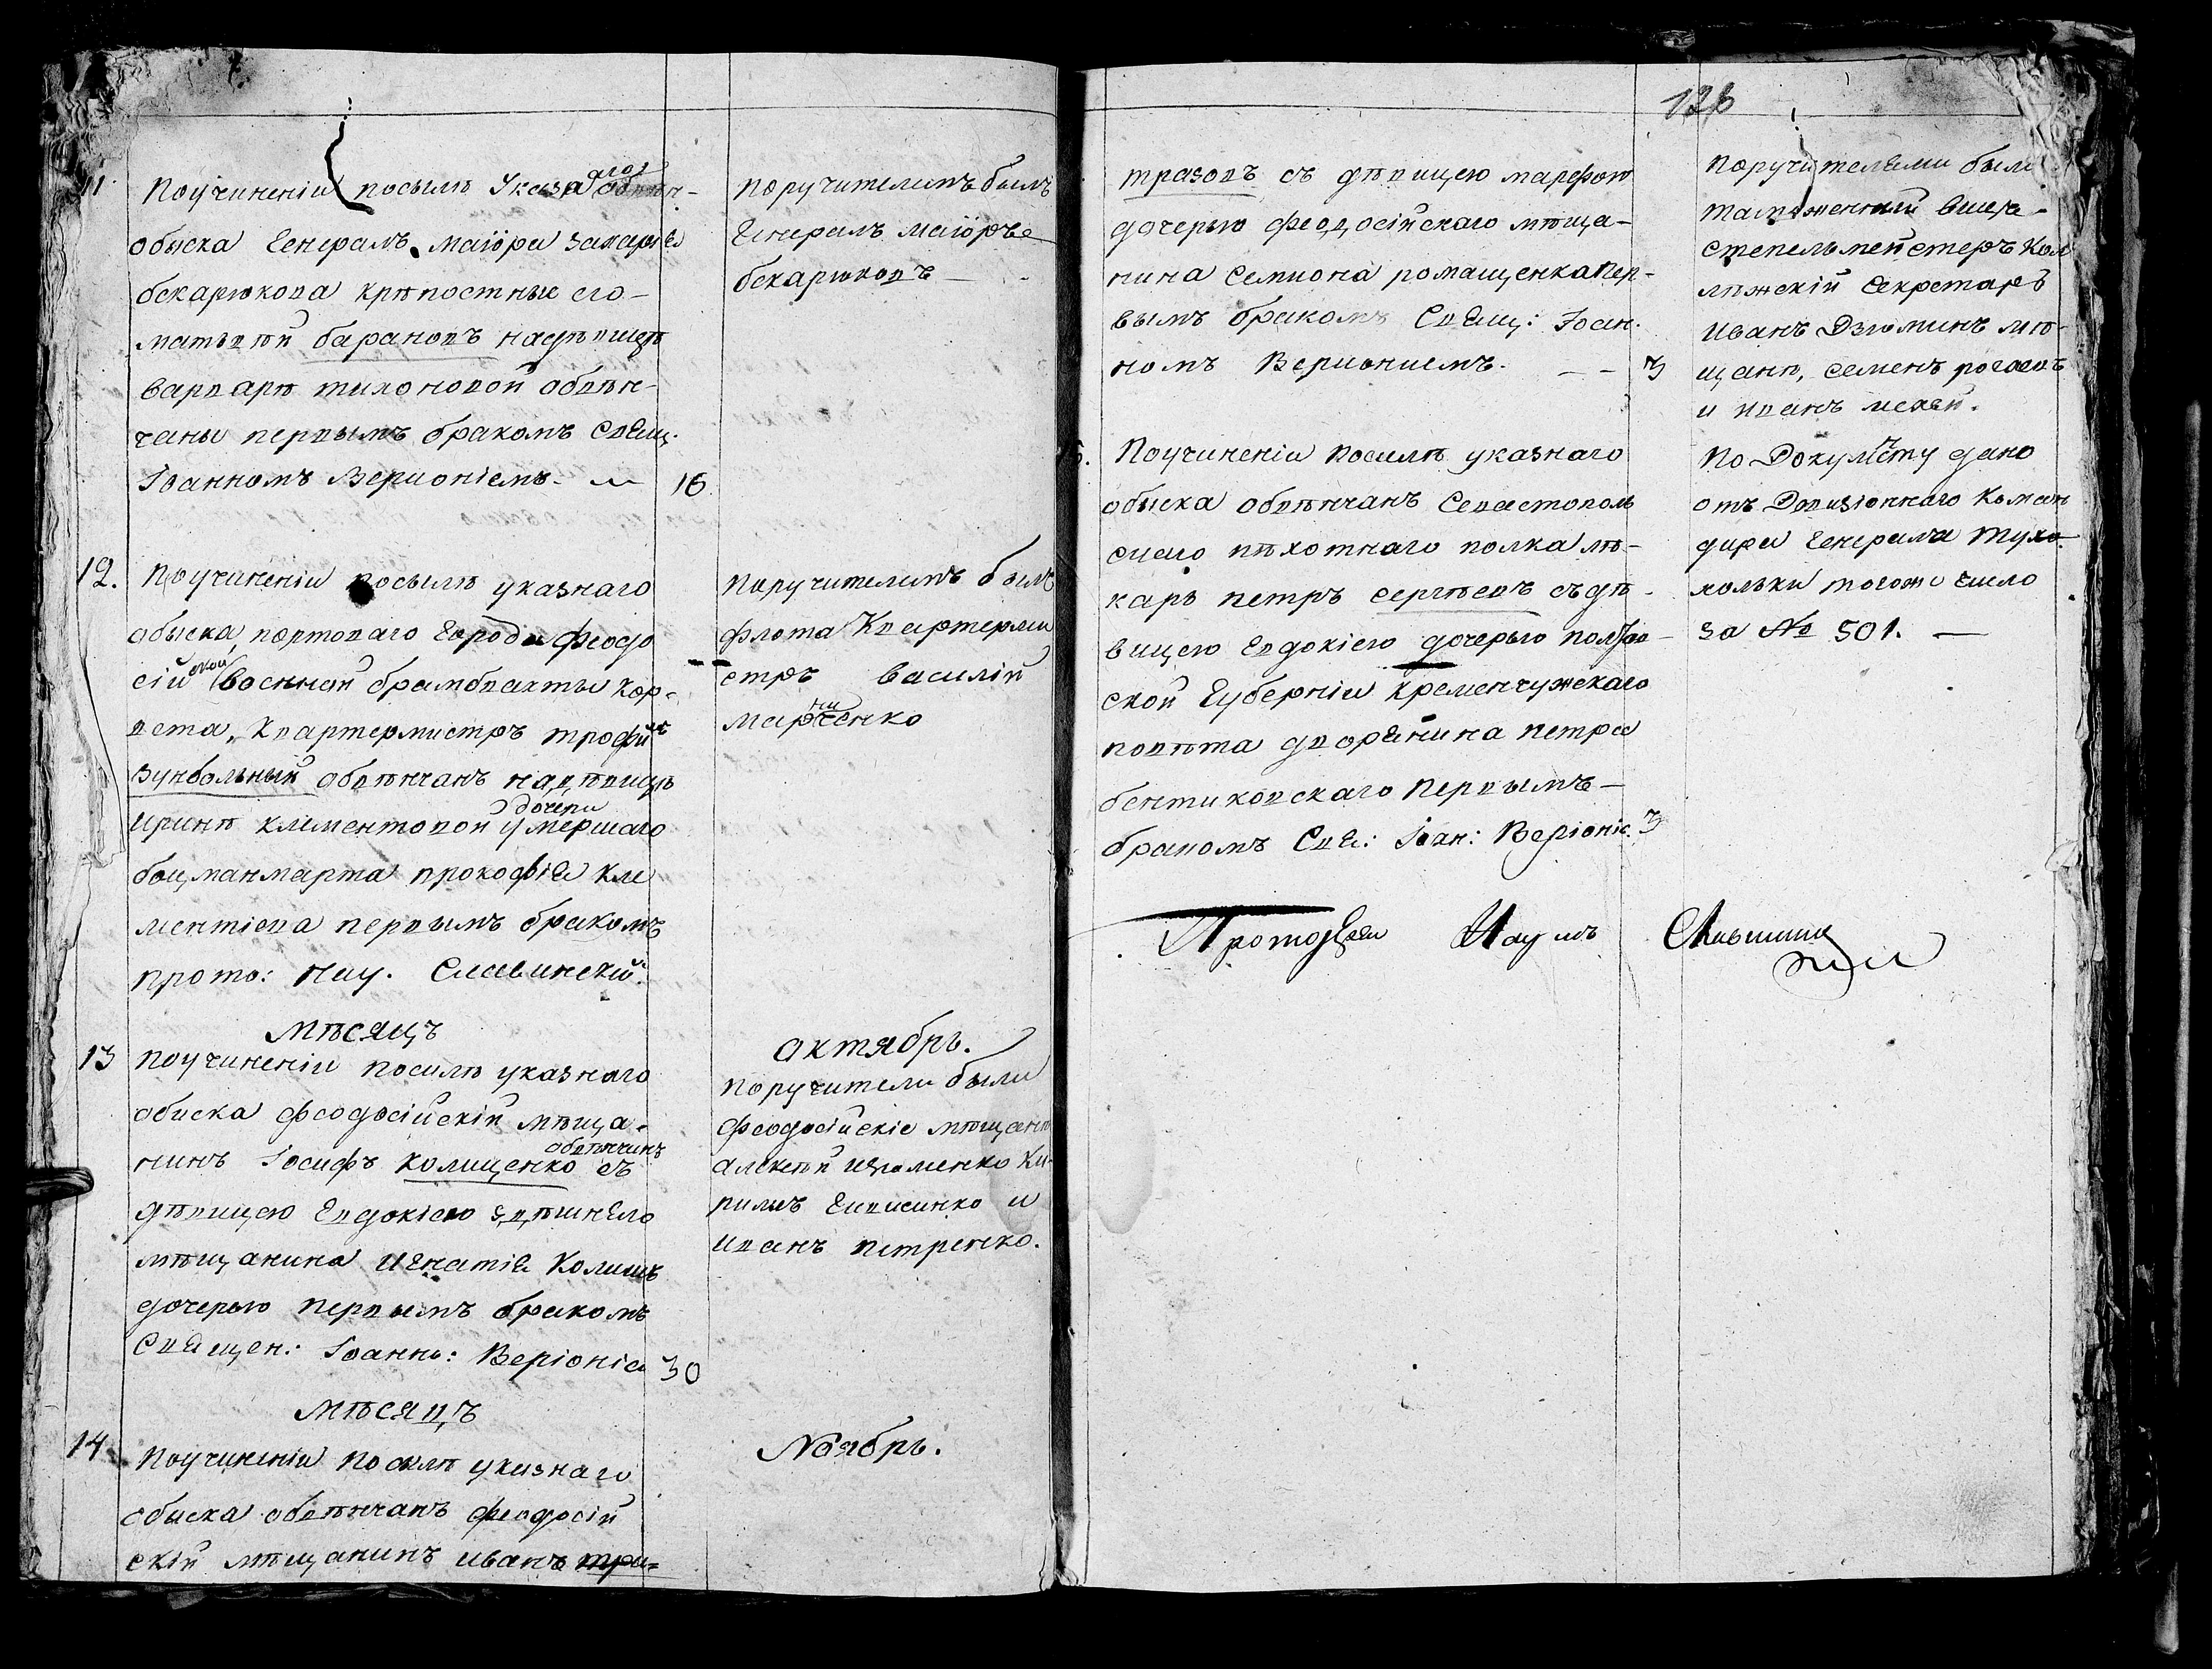 11. Поучиненіи посылѣ Указнаго
обыска Генералъ маіора Захарія
бекарюкова крѣпостные его
матвѣй барановъ надѣвицѣ
варварѣ тихоновой обвѣн-
чаны первымъ бракомъ Свящ.
Іоанномъ Веріоніемъ. 16
поручителемъ былъ
Генералъ маіоръ
бекарюковъ
12. Поучиненіи посылѣ указнаго
обыска, портоваго города феодо
сійской военной брамбвахты кор-
вета, квартермистръ трофимъ
Вунбольный обвѣнчанъ надѣвицѣ
иринѣ климентовой дочери умершаго
боцманмарта прокофія кли
ментіева первымъ бракомъ
прото: Нау. Славинскій.
поручителемъ былъ
флота Квартерми
стръ василій
марченко
Мѣсяцъ
октябрь.
13 Поучиненіи посилѣ указнаго
обиска феодосійскій мѣща-
нинъ Іосифъ колищенко обвѣнчанъ съ
дѣвицею Евдокіею здѣшняго
мѣщанина игнатія
дочерью первымъ бракомъ
Священ: Іоанн: Веріоніе 30
поручители были
феодосійскіе мѣщане
алексѣй Ки-
рилъ и
иванъ петренко.
Мѣсяцъ
Ноябрь.
14. Поучиненіи посилѣ указнаго
обыска обвѣнчанъ феодосій
скій мѣщанинъ иванъ тра=
126
тразовъ съ дѣвицею марфою
дочерью феодосійскаго мѣща-
нина семиона ромащенка пер-
вымъ бракомъ Свящ: Іоан-
номъ Вериониемъ. 3
поручителями были
таможенный
Кол
лѣжскій секретарь
иванъ Дзюминъ мѣ-
щане, семенъ рогаевъ
и иванъ
Поучиненіи посилѣ указнаго
обыска обвѣнчанъ Севастополь
скаго пѣхотнаго полка лѣ-
карь петръ сергѣевъ съдѣ-
вицею Евдокіею дочерью полтав-
ской Губерніи кременчужскаго
повѣта дворянина петра
бентиковскаго первымъ
бракомъ Свя: Іоан: Веріоніе. 3
по Документу дано
отъ Дивизіоннаго Коман
дира Генерала Тухо-
лольки тогоже число
за № 501.
Протоіерей Наумъ